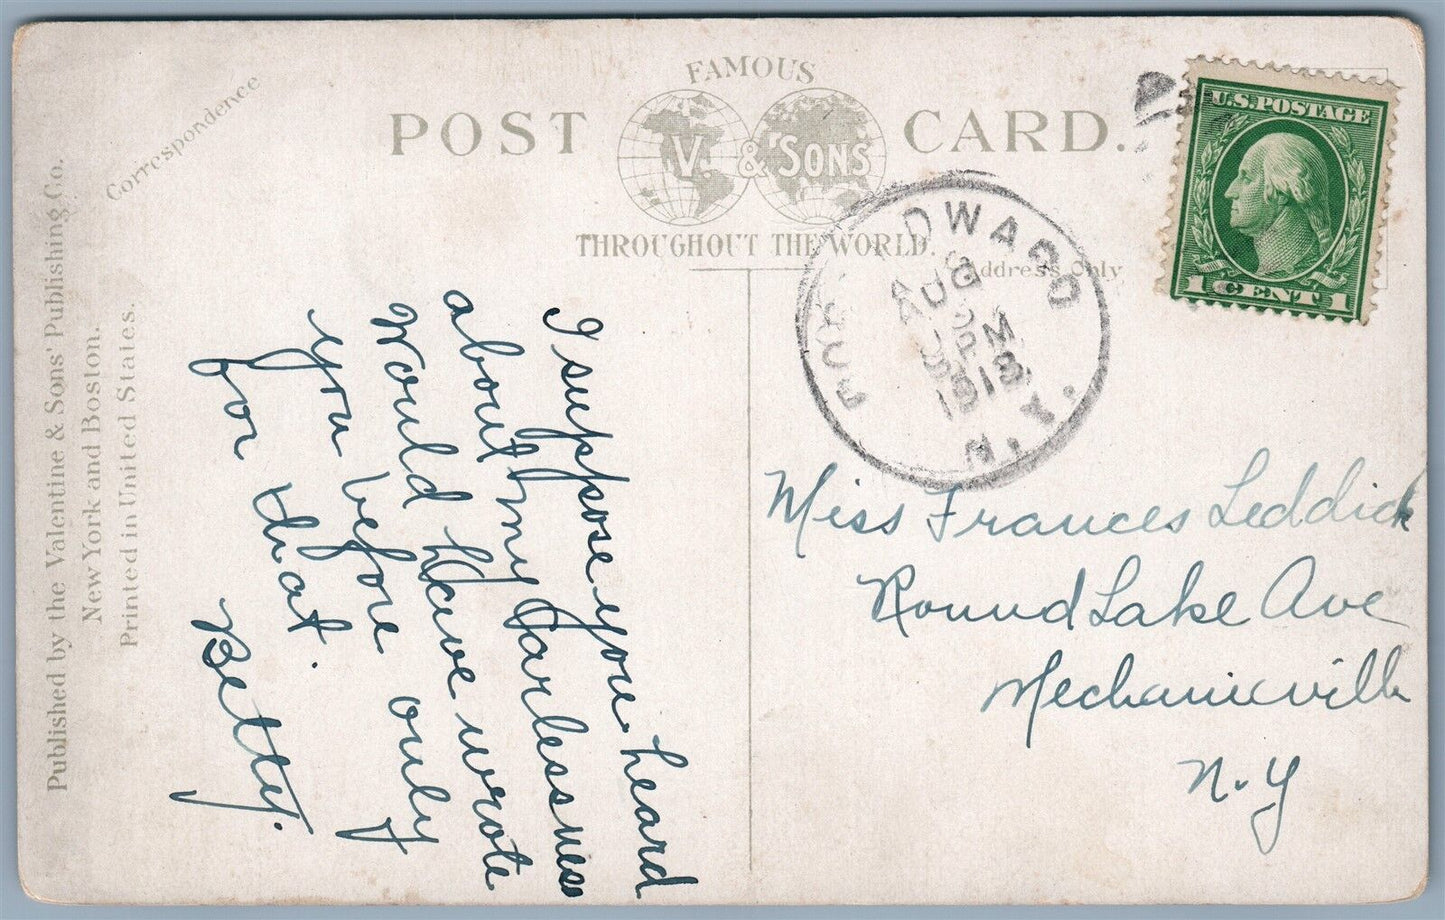 FAMOUS
POST CARD.
V. & SONS
THROUGHOUT THE WORLD.
Correspondence
Address Only
Published by the Valentine & Sons' Publishing Co.
New York and Boston.
Printed in United States.
U.S. POSTAGE
1 CENT 1
DWARD
N.Y.
AUG
PM
1913
I suppose you heard
about my carlessness
Would have wrote
you before only
for that.
Betty.
Miss Frances Leddick
Round Lake Ave
Mechanicville
N.Y